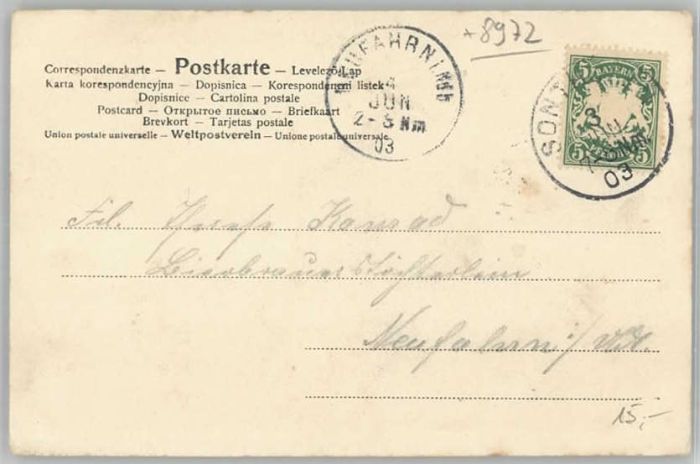 +8972
Correspondenzkarte – Postkarte – Levelező-Lap
Karta korespondencyjna – Dopisnica – Korespondenční lístek
Dopisnice – Cartolina postale
Postcard – Открытое письмо – Briefkaart
Brevkort – Tarjetas postale
Union postale universelle – Weltpostverein – Unione postale universale
NEUFAHRN i. Nb
4
JUN
2-3 Nm
03
5 BAYERN 5
5 5
SONT
3
JUN
03
Frl. Therese Konrad
Bierbrauerstöchterlein
Neufahrn i/Ndb.
15,-